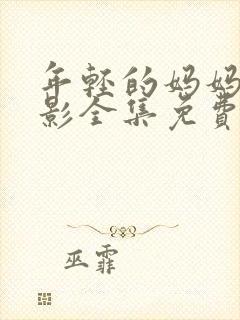 年轻的妈妈
影全集免費
巫霏